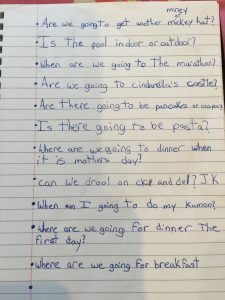 miney
or
• Are we going to get another mickey hat?
• Is the pool indoor or outdoor?
• When are we going to the marathon?
• Are we going To cindarella's castle?
• Are there going to be pancakes or
• Is there going to be pasta?
• Where are we going to dinner when
it is mothers day?
• can we drool on chip and dell? J K
• When am I going to do my Kumon?
• where are we going for dinner The
first day?
• where are we going for breakfast
•